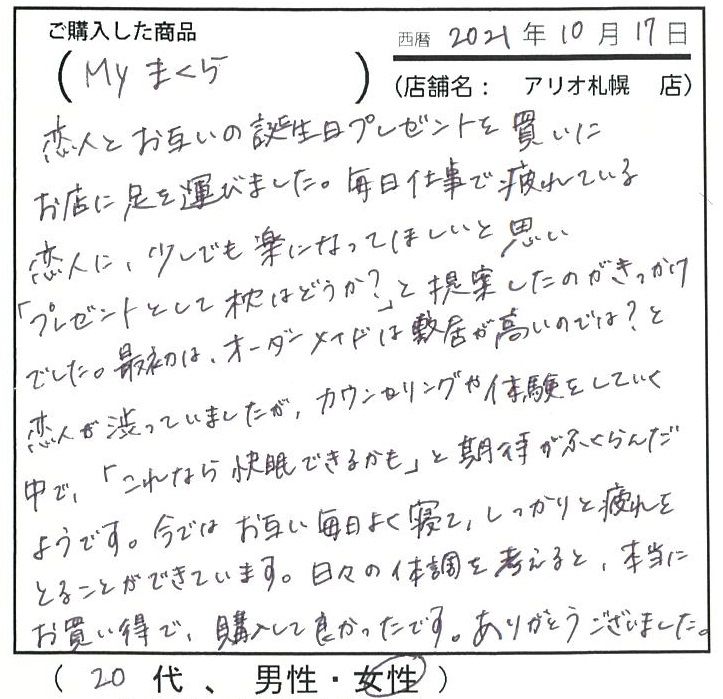 ご購入した商品
西暦 2021 年 10 月 17 日
(Myまくら)
(店舗名： アリオ札幌 店)
恋人とお互いの誕生日プレゼントを買いに
お店に足を運びました。毎日仕事で疲れている
恋人に、少しでも楽になってほしいと思い
「プレゼントとして枕はどうか?」と提案したのがきっかけ
でした。最初は、オーダーメイドは敷居が高いのでは?と
恋人が渋っていましたが、カウンセリングや体験をしていく
中で、「これなら快眠できるかも」と期待がふくらんだ
ようです。今ではお互い毎日よく寝て、しっかりと疲れを
とることができています。日々の体調を考えると、本当に
お買い得で、購入して良かったです。ありがとうございました。
( 20 代 、 男性・女性 )